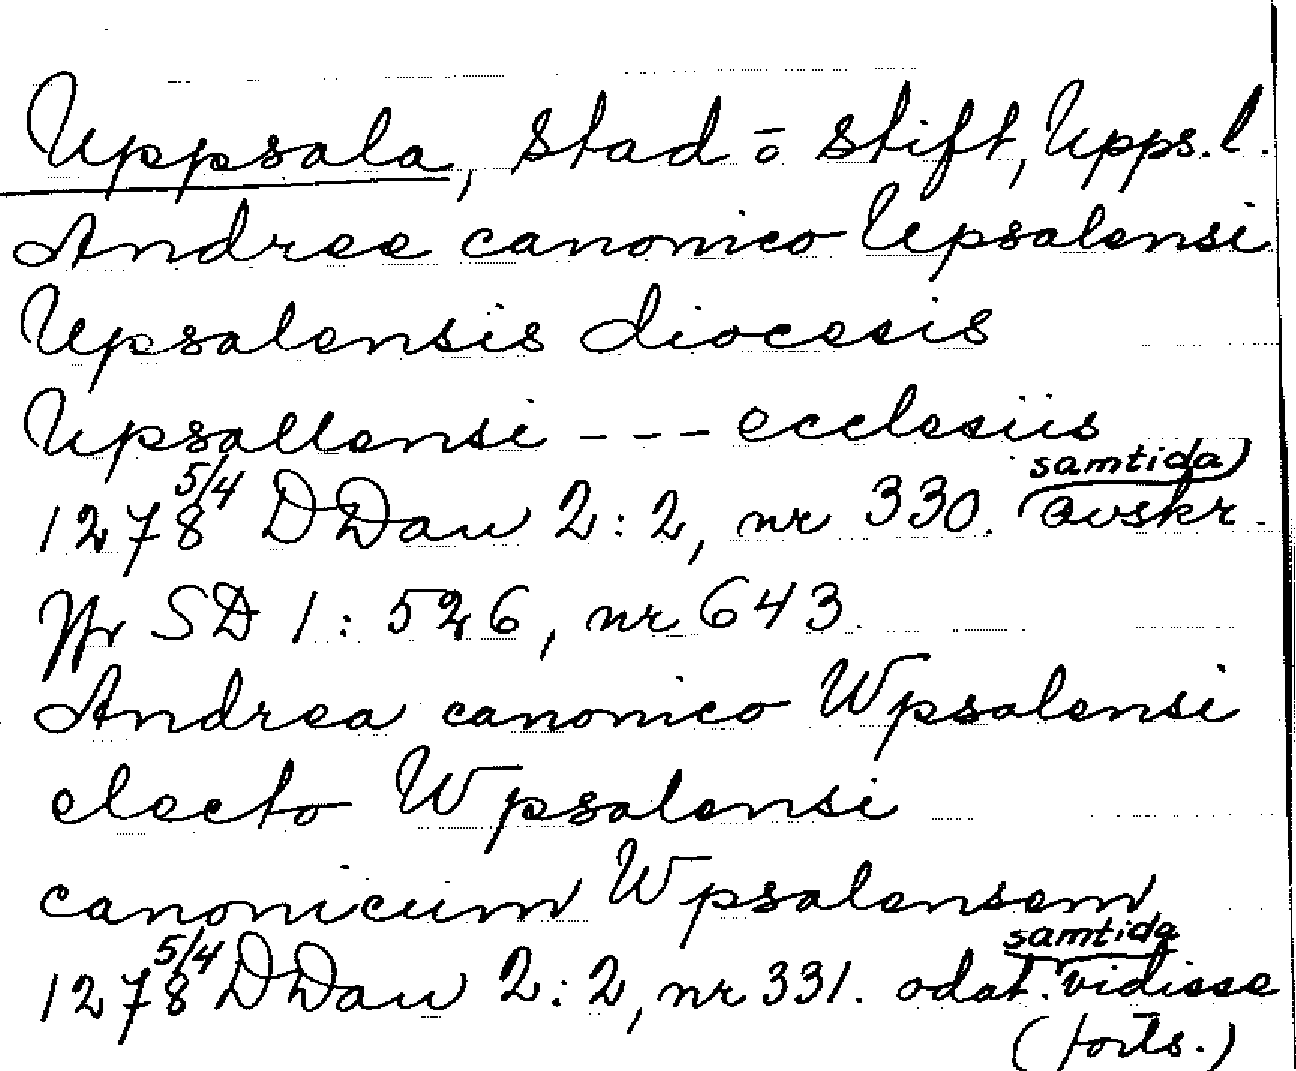 Uppsala, stad o stift, Upps.l.
Andree canonico Upsalensi
Upsalensis diocesis
Upsallensi --- ecclesiis
1278 5/4 DDan 2:2, nr 330. samtida avskr.
Jfr SD 1:526, nr 643.
Andrea canonico Wpsalensi
electo Wpsalensi
canonicum Wpsalensem
1278 5/4 DDan 2:2, nr 331. odat. samtida vidisse
(forts.)